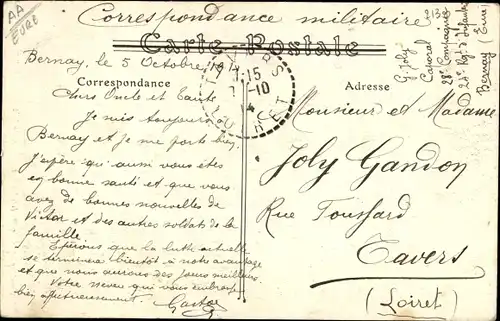 AA
EURE
Correspondance militaire
Carte Postale
Bernay, le 5 Octobre 19
Correspondance
Adresse
TAVERS
7 15
7-10
14
LOIRET
G. Joly
Caporal
28e Compagnie
24e Rgt d'Infanterie
Bernay (Eure)
Chers Oncle et Tante,
Je suis toujours à
Bernay et je me porte bien.
J'espère qu'aussi vous êtes
en bonne santé et que vous
avez de bonnes nouvelles de
Victor et des autres soldats de la
famille.
Espérons que la lutte actuelle
se terminera bientôt à notre avantage
et que nous aurons des jours meilleurs.
Votre neveu qui vous embrasse
bien affectueusement.
Gaston
Monsieur et Madame
Joly Gandon
Rue Toussard
Tavers
(Loiret)